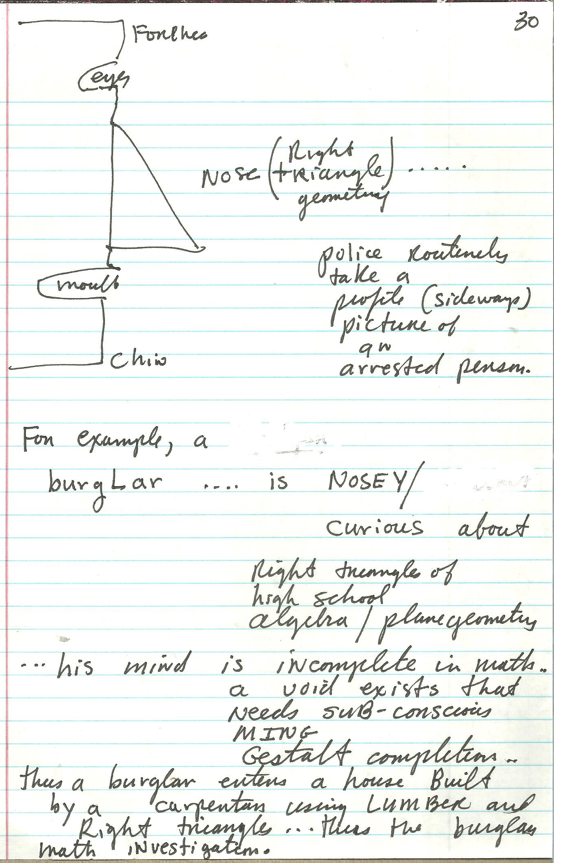 30
Forehea
eyes
NOSE (Right
triangle) .....
geometry
mouth
police Routinely
take a
profile (sideways)
picture of
an
arrested person.
Chin
For example, a
burgLar .... is NOSEY/
curious about
Right triangles of
high school
algebra / plane geometry
... his mind is incomplete in math..
a void exists that
Needs sub-conscious
MING
Gestalt completion..
thus a burglar enters a house Built
by a carpenter using LUMBER and
Right triangles ... thus the burglar
math investigation.